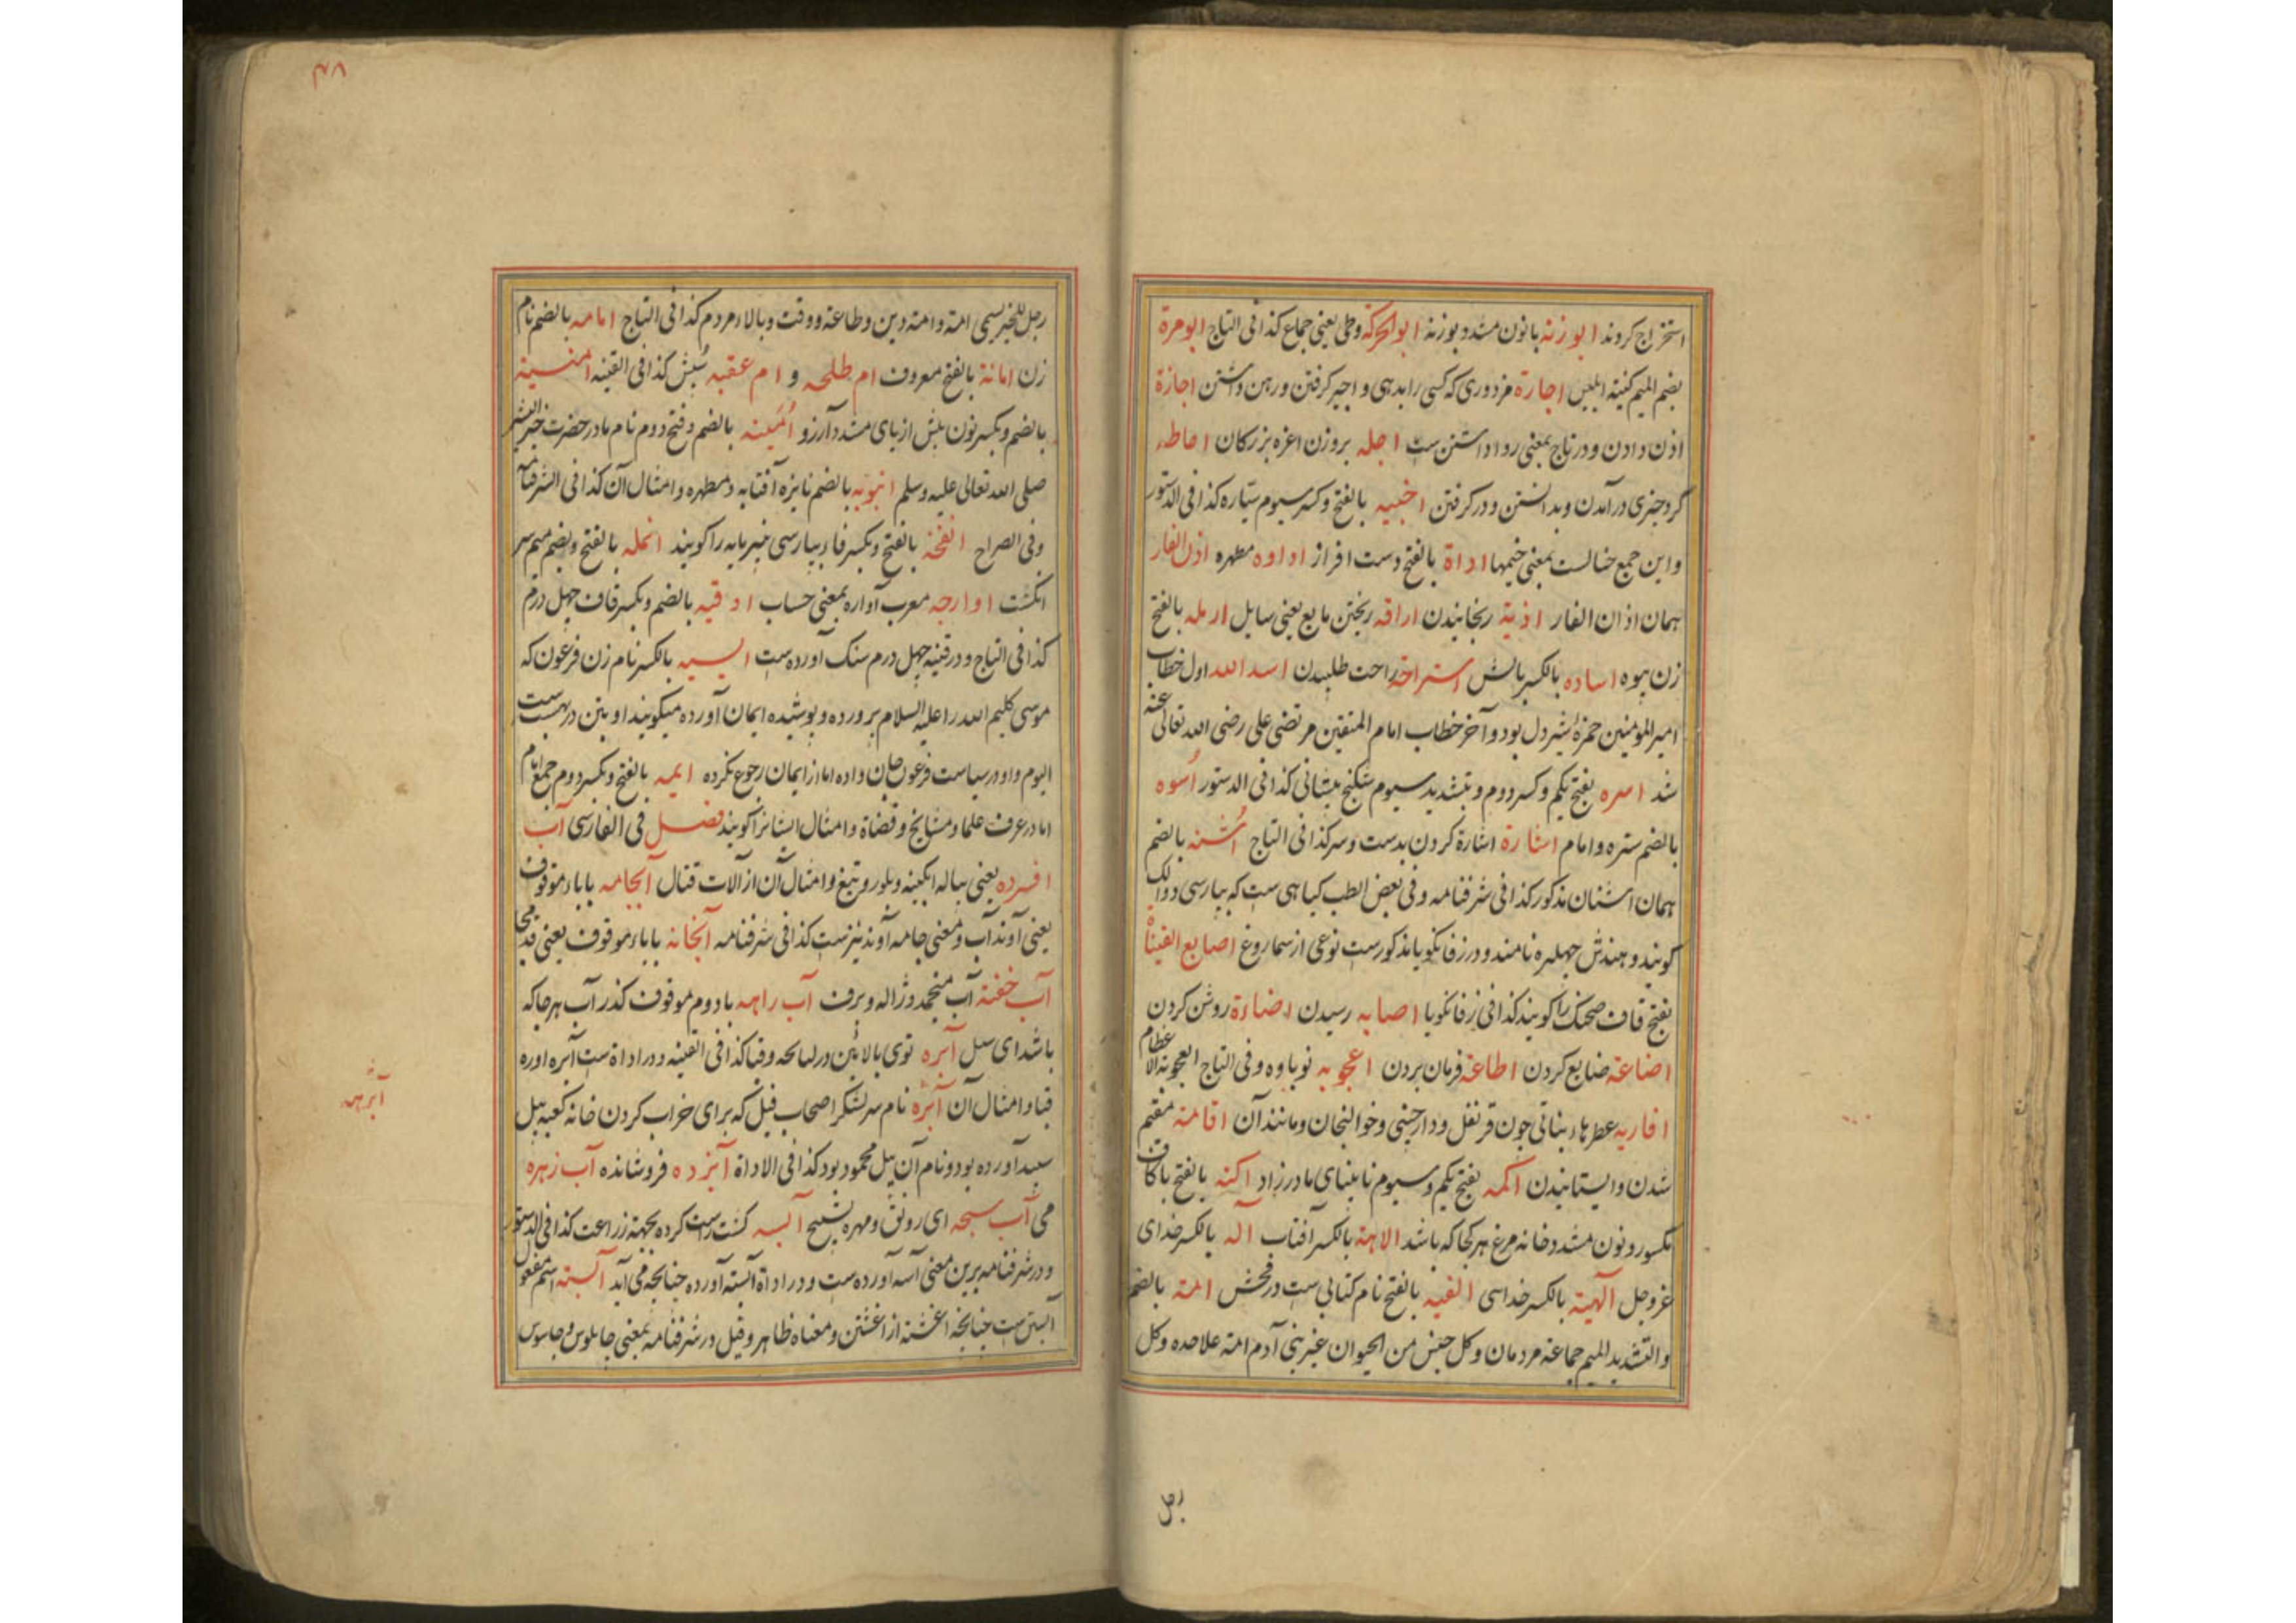 استخراج کردند ابوزنه بانون مشدد بوزنه ابوالحرکة وطی یعنی جماع کذا فی التاج ابومرة
بضم المیم کنیة ابلیس اجارة مزدوری که کسی را بدهی و اجیر گرفتن و رهن داشتن اجازة
اذن دادن و در تاج بمعنی روا داشتن ست اجله بروزن اعزه بزرکان احاطه
کرد چیزی در آمدن و بدانستن و در کرفتن اخبیه بالفتح و کسر سیوم ستاره کذا فی الدستور
و این جمع خباست بمعنی خیمها اداة بالفتح دست افزار اداوه مطهره اذن الفار
همان اذان الفار اذیة رنجانیدن اراقه ریختن مایع یعنی سایل ارمله بالفتح
زن بیوه اساده بالکسر بالش استراحة راحت طلبیدن اسد الله اول خطاب
امیر المومنین حمزهٔ شیر دل بود و آخر خطاب امام المتقین مرتضی علی رضی الله تعالی عنه
شد اسره بفتح یکم و کسر دوم و بتشدید سیوم شکنج پیشانی کذا فی الدستور أسوه
بالضم ستره و امام اشارة اشارة کردن بدست و سر کذا فی التاج أشنه بالضم
همان اشنان مذکور کذا فی شرفنامه و فی بعض الطب کیاهی ست که بپارسی دوالک
کویند و هندش چهلره نامند و در زفانکویا مذکورست نوعی از سماروغ اصابع الفیناة
بفتح قاف صحنک را کویند کذا فی زفانکویا اصابه رسیدن اضاءة روشن کردن
اضاعة ضایع کردن اطاعة فرمان بردن اعجوبه نوباوه و فی التاج العجوبة الاعظام
افاریه عطرهاء نباتی چون قرنفل و دارچینی و خوالنجان و مانند آن اقامة مقیم
شدن و ایستانیدن اکمه بفتح یکم و سیوم نابینای مادرزاد اکنه بالفتح باکاف
مکسور و نون مشدد خانه مرغ هر کجا که باشد الاهة بالکسر آفتاب آله بالکسر خدای
عز و جل آلهیة بالکسر خدایی الفیه بالفتح نام کتابی ست در فحش امة بالضم
و التشدید المیم جماعة مردمان و کل جنس من الحیوان غیر بنی آدم امة علاحده و کل
رجل
۴۸
رجل للخیر یسمی امة و امة دین و طاعة و وقت و بالاء مردم کذا فی التاج امامه بالضم نام
زن امانة بالفتح معروف ام طلحه و ام عقبه سُپش کذا فی القنیه امنیة
بالضم و بکسر نون پیش از یای مشدد آرزو اُمَینه بالضم و فتح دوم نام مادر حضرت خیر البشر
صلی الله تعالی علیه وسلم انبوبه بالضم نایزه آفتابه و مطهره و امثال آن کذا فی الشرفنامه
و فی الصراح انفحة بالفتح و بکسر فا بپارسی خمیرمایه را کویند انمله بالفتح و بضم میم سر
انکشت اوارجه معرب آواره بمعنی حساب اوقیه بالضم و بکسر قاف چهل درم
کذا فی التاج و در قنیه چهل درم سنک آورده ست ایسیه بالکسر نام زن فرعون که
موسی کلیم الله را علیه السلام پرورده و پوشیده ایمان آورده میکویند او بتن در بهشت ست
الیوم و او در سیاست فرعون جان داده اما از ایمان رجوع نکرده ایمه بالفتح و بکسر دوم جمع امام
اما در عرف علما و مشایخ و قضاة و امثال ایشانرا کویند فصل فی الفارسی آب
افسرده یعنی پیاله ابکینه و بلور و تیغ و امثال آن از آلات قتال آبجامه باباء موقوف
یعنی آوند آب و بمعنی جامه آوند نیزست کذا فی شرفنامه آبخانه باباء موقوف یعنی قدمجا
آب خفته آب منجمد و ژاله و برف آب راهه با دوم موقوف کذر آب هر جا که
باشد ای سیل آبره توی بالائین در لبابچه و قبا کذا فی القنیه و در اداة ست آبره اوره
قبا و امثال آن آبره نام سر لشکر اصحاب فیل که برای خراب کردن خانه کعبه پیل
سپید آورده بود و نام آن پیل محمود بود کذا فی الاداة آبزده فرو شانده آب زهره
می آب سبحه ای رونق و مهره تسبیح آبسه کشت راست کرده بجهة زراعت کذا فی الدستور
و در شرفنامه برین معنی آسه آورده ست و در اداة آبسته آورده چنانچه می آید آبسته اسم مفعول
آبستن ست چنانچه اغشته از اغشتن و معناه ظاهر و قیل در شرفنامه بمعنی چاپلوس و جاسوس
آبرهه